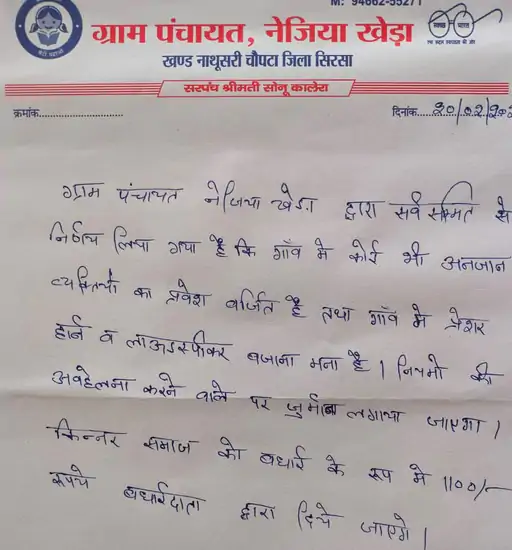 M: 94662-55271
ग्राम पंचायत, नेजिया खेड़ा
खण्ड नाथूसरी चौपटा जिला सिरसा
सरपंच श्रीमती सोनू कालेरा
क्रमांक............................
दिनांक.....20/02/20
ग्राम पंचायत नेजिया खेड़ा द्वारा सर्व सम्मति से
निर्णय लिया गया है कि गाँव मे कोई भी अनजान
व्यक्तियों का प्रवेश वर्जित है तथा गाँव मे प्रेशर
हॉर्न व लाऊडस्पीकर बजाना मना है। नियमो की
अवहेलना करने वाले पर जुर्माना लगाया जाएगा।
किन्नर समाज को बधाई के रूप मे 1100/-
रूपये बधाईदाता द्वारा दिये जाएगे।